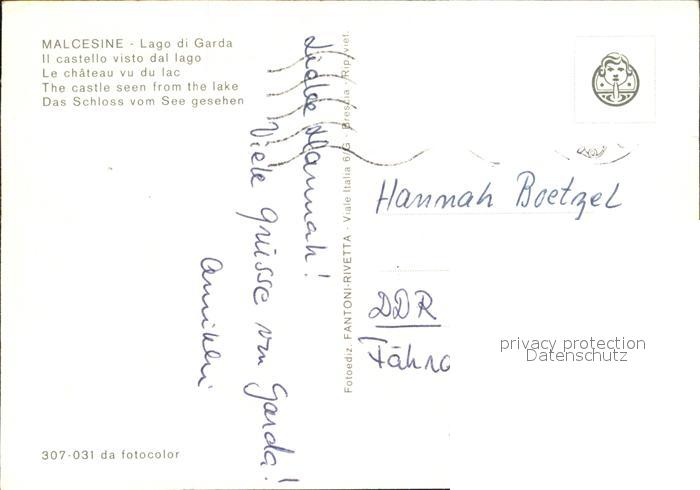 MALCESINE - Lago di Garda
Il castello visto dal lago
Le château vu du lac
The castle seen from the lake
Das Schloss vom See gesehen
Hannah!
Viele Grüsse von Garda!
Fotoediz. FANTONI-RIVETTA - Viale Italia 6/G - Brescia - Rip. viet.
Hannah Boetzel
DDR
privacy protection
Datenschutz
307-031 da fotocolor